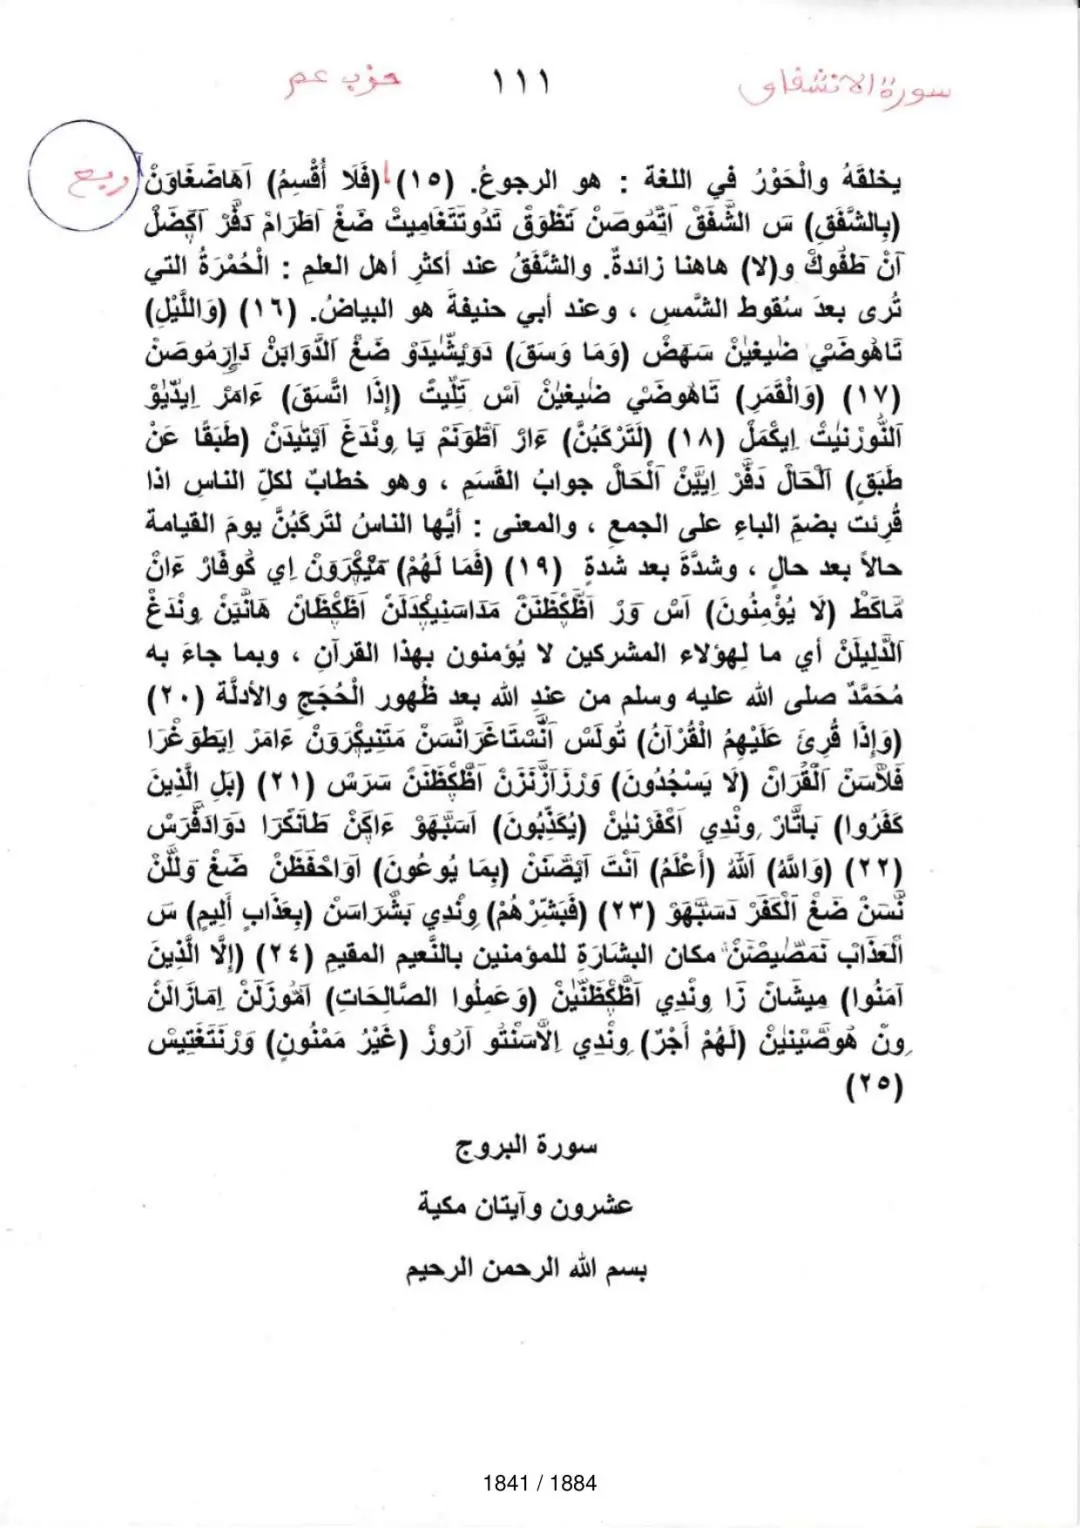 سورة الانشقاق ١١١ حزب عم
ربع
يخلقَهُ والْحَوْرُ في اللغة : هو الرجوعُ. (١٥) (فَلَا أُقْسِمُ) آهَاضَغَاوَنْ
(بِالشَّفَقِ) سَ الشَّفَقْ آتِمُوصَنْ تَظْوَقْ تَدُوتَتَغَامِيتْ ضَغْ اَطَرَامْ دَفَّرْ آكِضَلْ
آنْ طَفُوكْ و(لا) هاهنا زائدةٌ. والشَّفَقُ عند أكثرِ أهل العلمِ : الْحُمْرَةُ التي
تُرى بعدَ سقُوط الشَّمسِ ، وعند أبي حنيفةَ هو البياضُ. (١٦) (وَاللَّيْلِ)
تَاهُوضَيْ ضِيغِينْ سَهَضْ (وَمَا وَسَقَ) دَوَيْشِّيدَوْ ضَغْ اَلدَّوَابَنْ دَارِمُوصَنْ
(١٧) (وَالْقَمَرِ) تَاهُوضَيْ ضِيغِينْ اَسْ تَلِّيتْ (إِذَا اتَّسَقَ) ءَامَرْ اِيدِّيْوْ
اَلنُّورْنِيتْ اِيكْمَلْ (١٨) (لَتَرْكَبُنَّ) ءَارْ اَطَّوَنَمْ يَا وِنْدَغَ آيْتِيدَنْ (طَبَقًا عَنْ
طَبَقٍ) اَلْحَالْ دَفَّرْ اِيَيَّنْ اَلْحَالْ جوابُ القَسَمِ ، وهو خطابٌ لكلِّ الناسِ اذا
قُرئت بضمِّ الباءِ على الجمعِ ، والمعنى : أيُّها الناسُ لتَركَبُنَّ يومَ القيامة
حالاً بعد حالٍ ، وشدَّةً بعد شدةٍ (١٩) (فَمَا لَهُمْ) مَيْكَرَوَنْ اِي كُوفَارْ ءَانْ
مَّاكَطْ (لَا يُؤْمِنُونَ) اَسْ وَرْ اَظَّكِظَنَنْ مَدَاسَنِيكْدَلَنْ اَظَّكِظَانْ هَانَيَنْ وِنْدَغْ
اَلدَّلِيلَنْ أي ما لِهؤلاءِ المشركين لا يُؤمنون بهذا القرآنِ ، وبما جاءَ به
مُحَمَّدٌ صلى الله عليه وسلم من عندِ الله بعد ظُهور الْحُجَجِ والأدلَّة (٢٠)
(وَإِذَا قُرِئَ عَلَيْهِمُ الْقُرْآنُ) تُولَسْ اَنَّسْتَاغَرَانَسَنْ مَتَنِيكْرَوَنْ ءَامَرْ اِيطَوَغْرَا
فَلَّاسَنْ اَلْقُرَانْ (لَا يَسْجُدُونَ) وَرْزَازَّنْزَنْ اَظَّكِظَنَنْ سَرَسْ (٢١) (بَلِ الَّذِينَ
كَفَرُوا) بَاتَّارْ وِنْدِي اَكْفَرْنِينْ (يُكَذِّبُونَ) اَسَبَّهَوْ ءَاكِنْ طَانَكْرَا دَوَادَفَّرَسْ
(٢٢) (وَاللَّهُ) اَللهْ (أَعْلَمُ) اَنْتَ آيِصَّنَنْ (بِمَا يُوعُونَ) اَوَاحْفَظَنْ ضَغْ وَلَّنْ
نَّسَنْ ضَغْ اَلْكَفَرْ دَسَبَّهَوْ (٢٣) (فَبَشِّرْهُمْ) وِنْدِي بَشَّرَاسَنْ (بِعَذَابٍ أَلِيمٍ) سَ
اَلْعَذَابْ نَمَصِّيصَنْ مكان البشارَةِ للمؤمنين بالنَّعيم المقيمِ (٢٤) (إِلَّا الَّذِينَ
آمَنُوا) مِيشَانْ زَا وِنْدِي اَظَّكِظَنِّينْ (وَعَمِلُوا الصَّالِحَاتِ) اَمُّوزَلَنْ اِمَازَالَنْ
وِنْ هُوصَّيْنِينْ (لَهُمْ أَجْرٌ) وِنْدِي اِلَّاسَنْتُو آرُوزْ (غَيْرُ مَمْنُونٍ) وَرْنَتَغَتِيسْ
(٢٥)
سورة البروج
عشرون وآيتان مكية
بسم الله الرحمن الرحيم
1841 / 1884